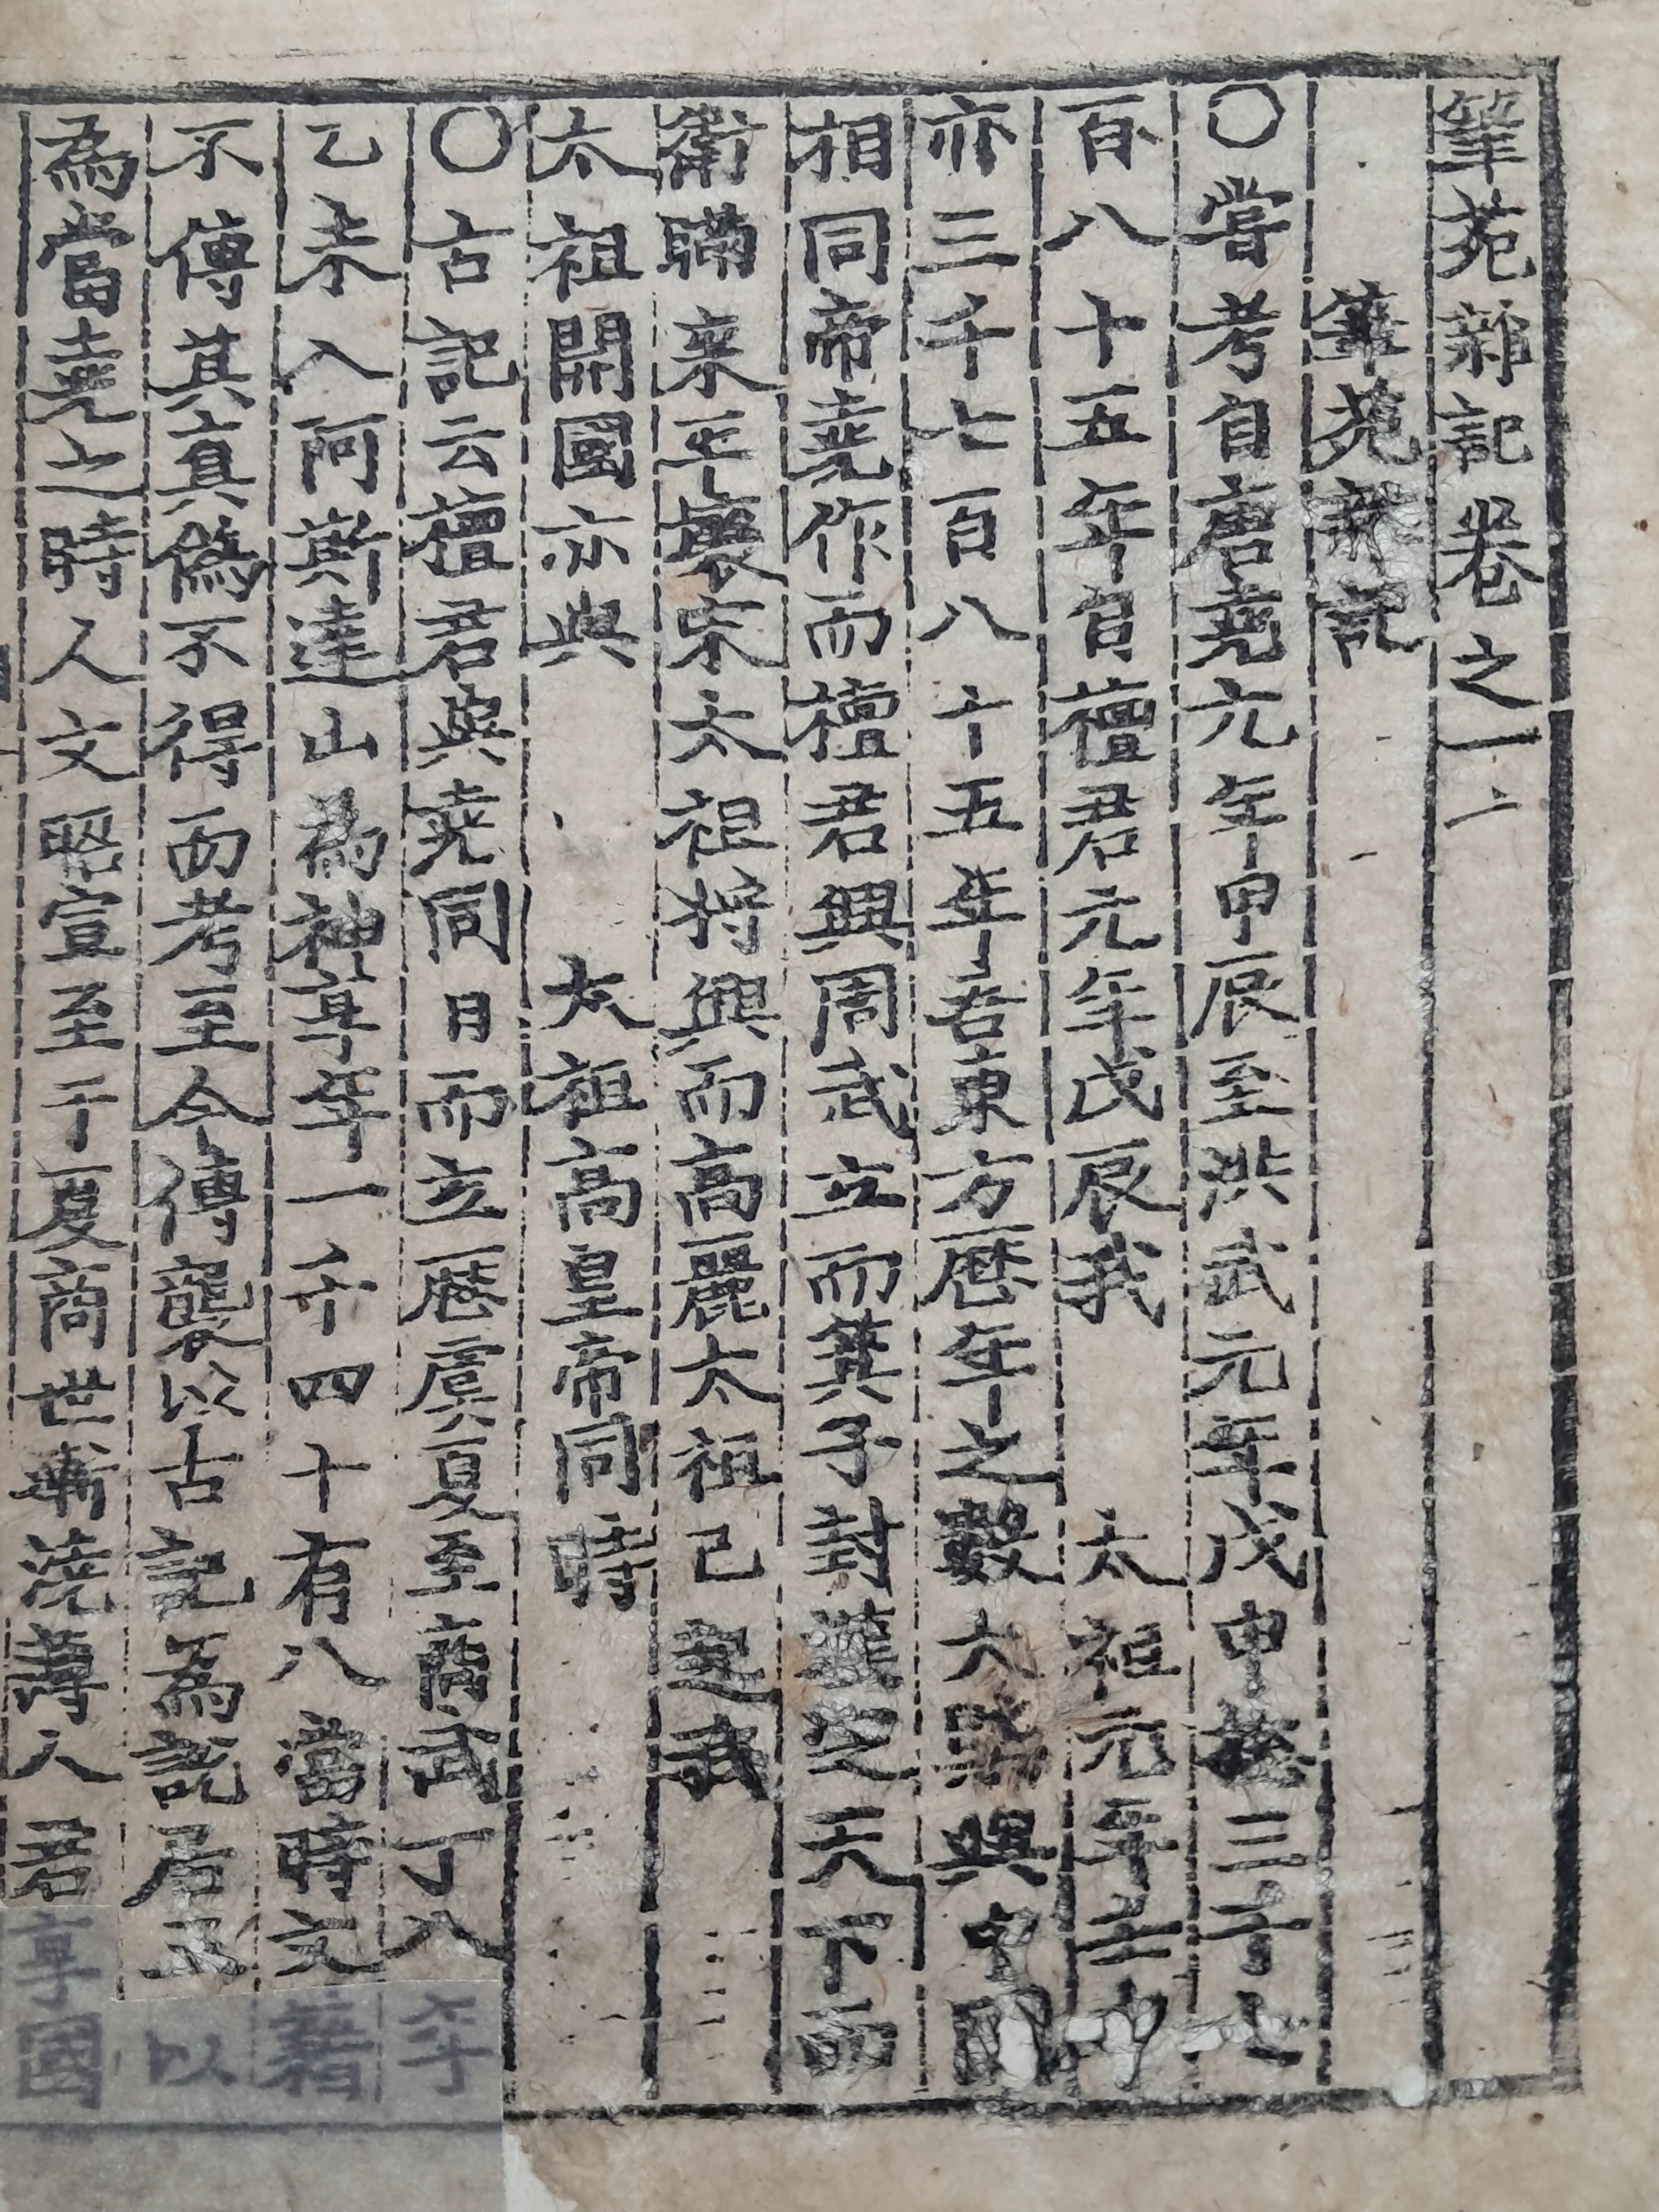 筆苑雜記卷之一
筆苑雜記
〇嘗考自唐堯元年甲辰至洪武元年戊申摠三千七
百八十五年自檀君元年戊辰我 太祖元年壬申
亦三千七百八十五年吾東方歷年之數大槩與中國
相同帝堯作而檀君興周武立而箕子封漢定天下而
衛滿来平襄宋太祖将興而高麗太祖已起我
太祖開國亦與 太祖高皇帝同時
〇古記云檀君與堯同日而立歷虞夏至商武丁八年
乙未入阿斯達山為神享年一千四十有八當時文籍
不傳其真偽不得而考至今傳襲以古記為說居正以
為當堯之時人文昭宣至于夏商世漸澆薄人君享國